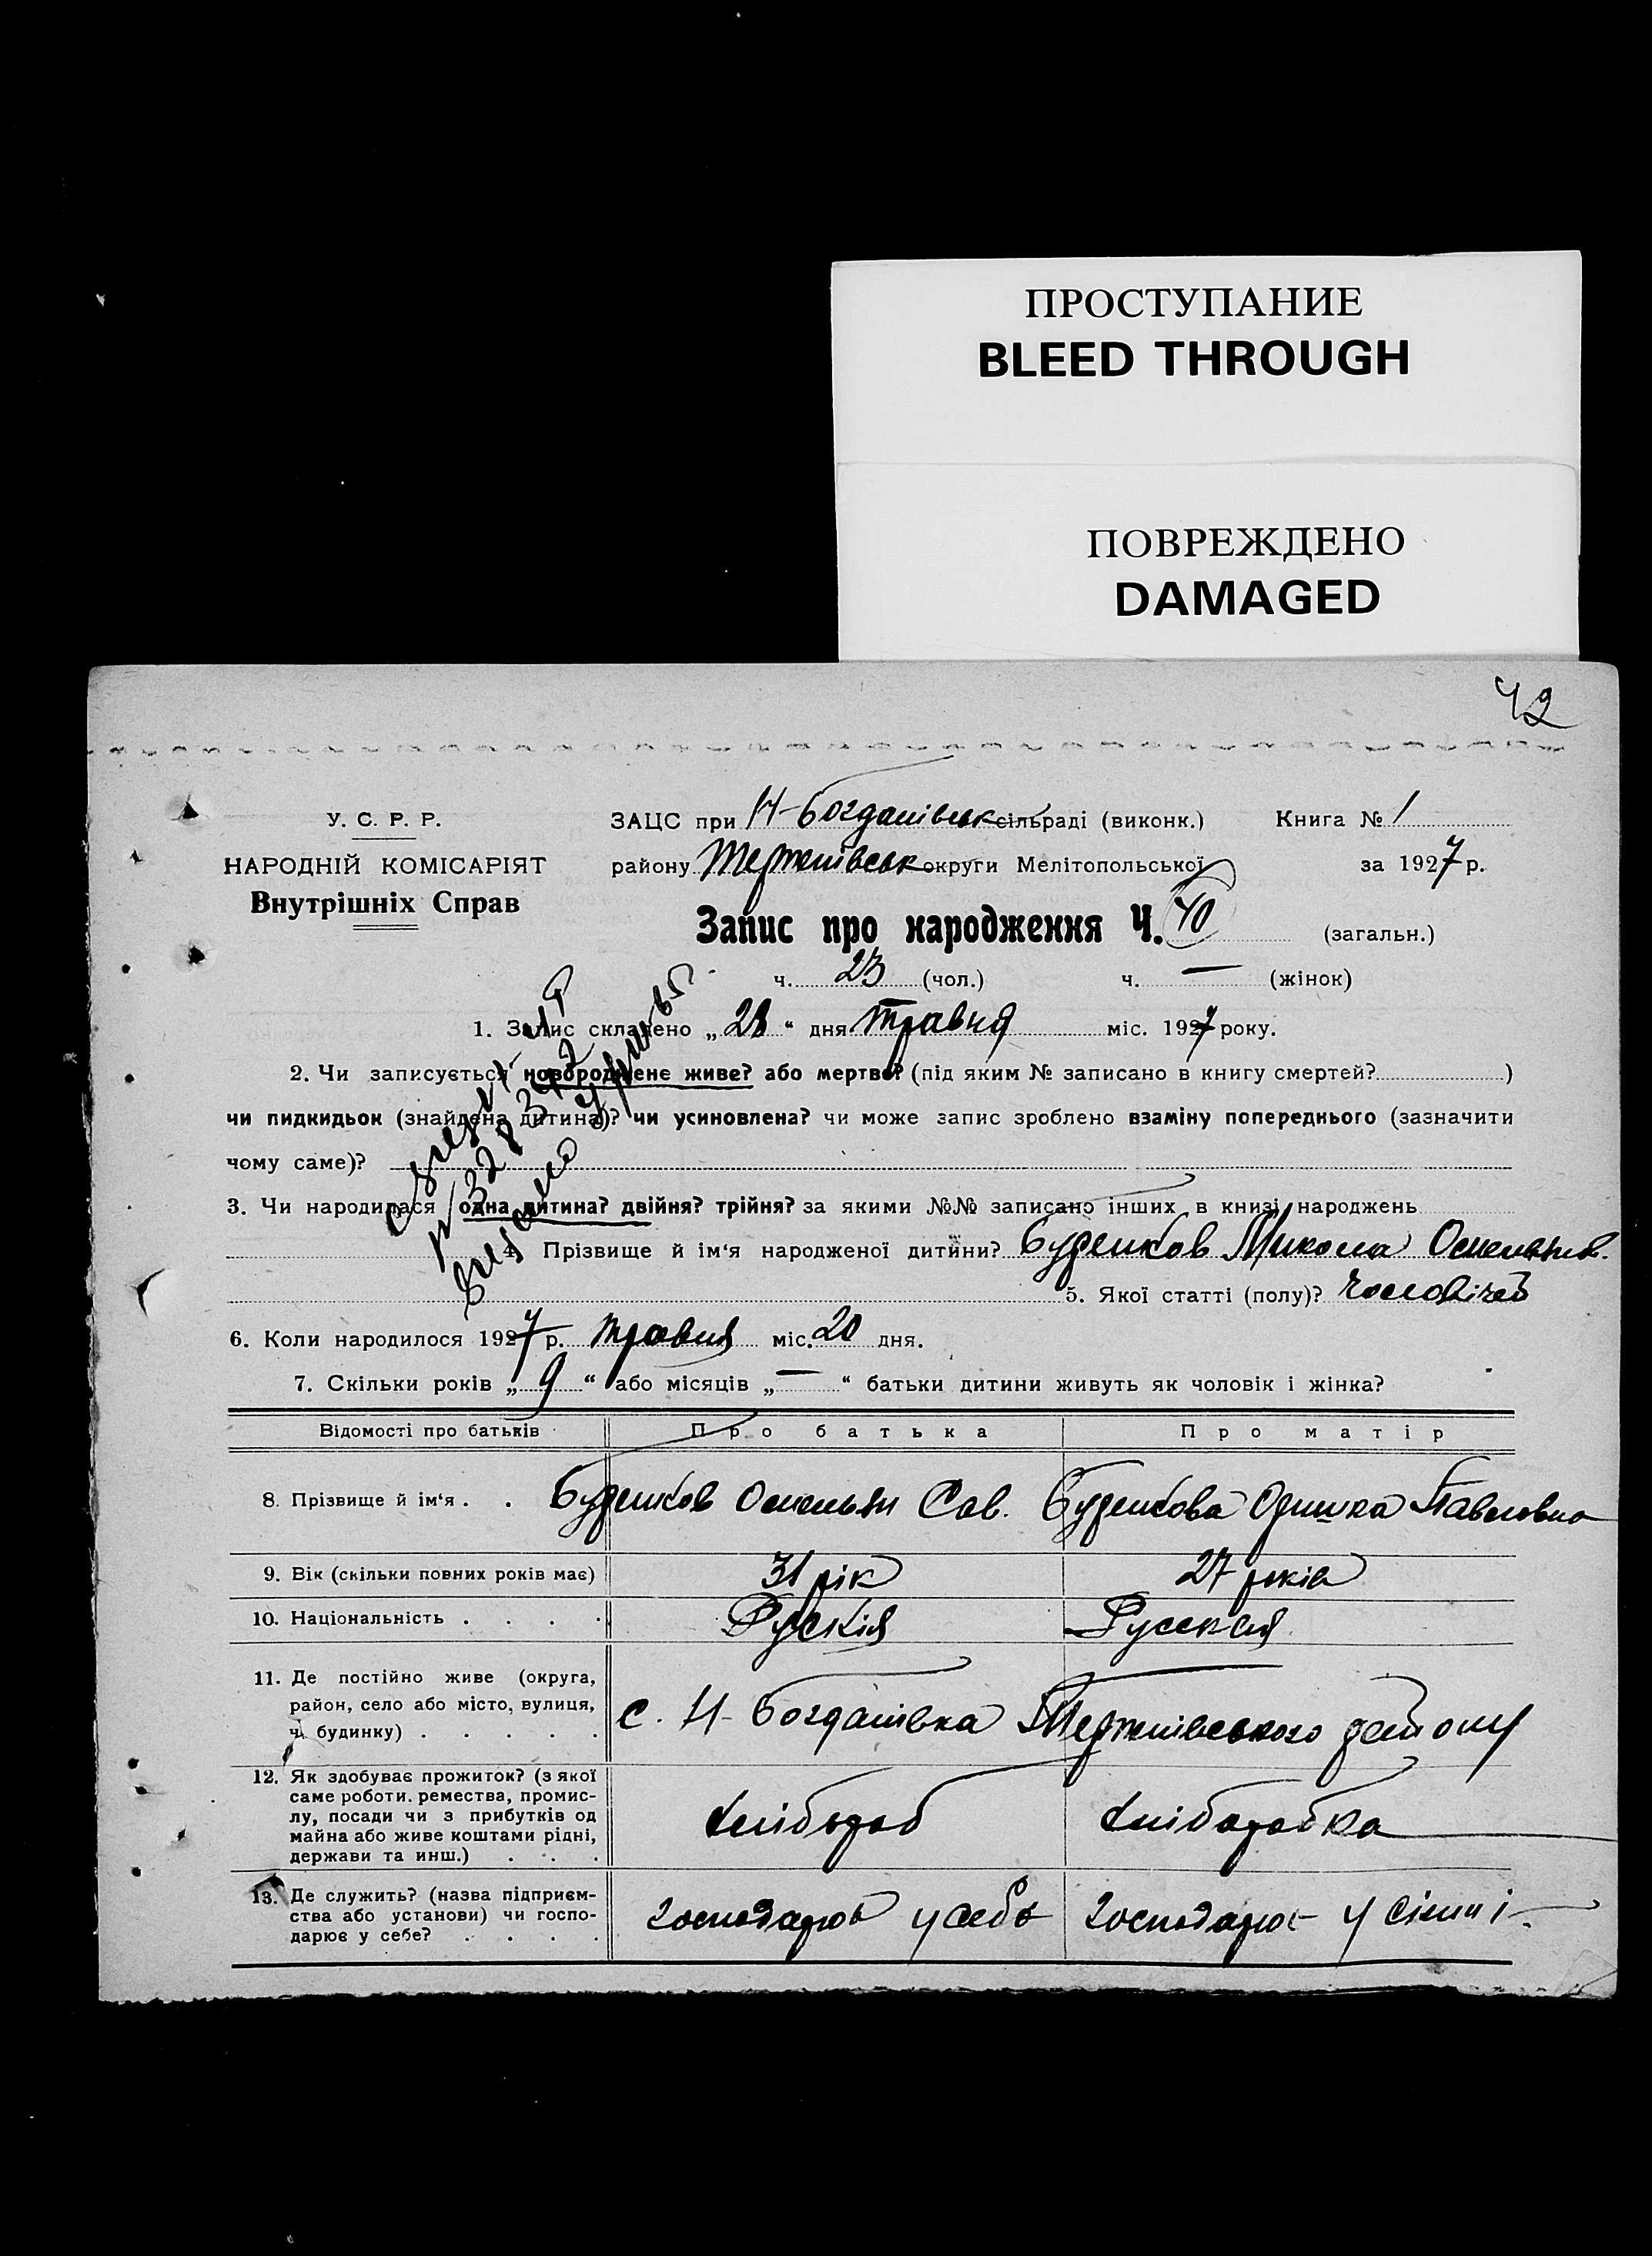 ПРОСТУПАНИЕ
BLEED THROUGH
ПОВРЕЖДЕНО
DAMAGED
42
У. С. Р. Р.
НАРОДНІЙ КОМІСАРІЯТ
Внутрішніх Справ
ЗАЦС при Н-Богданівськ сільраді (виконк.) Книга № 1
району Терпнівськ округи Мелітопольської за 1927 р.
Запис про народження Ч. 40 (загальн.)
ч. 23 (чол.) ч. — (жінок)
1. Запис складено „28“ дня травня міс. 1927 року.
2. Чи записується новороджене живе? або мертве? (під яким № записано в книгу смертей? )
чи пидкидьок (знайдена дитина)? чи усиновлена? чи може запис зроблено взаміну попереднього (зазначити
чому саме)?
3. Чи народилася одна дитина? двійня? трійня? за якими №№ записано інших в книзі народжень
4. Прізвище й ім‘я народженої дитини? Буденков Микола Омельянов.
5. Якої статті (полу)? чоловічей
6. Коли народилося 1927 р. травня міс. 20 дня.
7. Скільки років „9“ або місяців „—“ батьки дитини живуть як чоловік і жінка?
Відомості про батьків Про батька Про матір
8. Прізвище й ім‘я . . Буденков Омельян Сав. Буденкова Оришка Павловна
9. Вік (скільки повних років має) 31 рік 27 років
10. Національність . . . . Рускія Русская
11. Де постійно живе (округа,
район, село або місто, вулиця,
ч. будинку) . . . . . с. Н-Богданівка Терпнівського району
12. Як здобуває прожиток? (з якої
саме роботи. ремества, промис-
лу, посади чи з прибутків од
майна або живе коштами рідні,
держави та инш.) . . . хлібороб хліборобка
13. Де служить? (назва підприєм-
ства або установи) чи госпо-
дарює у себе? . . . . господарює у себе господарює у сімні